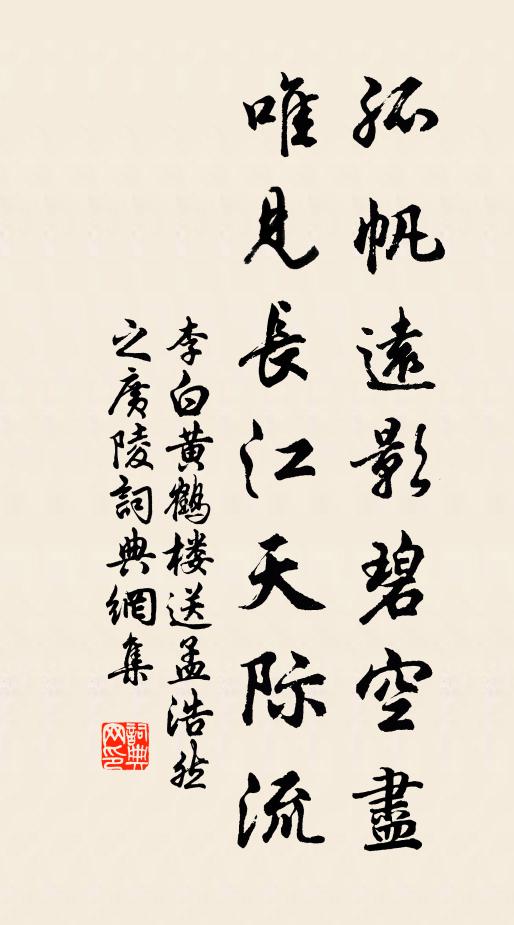 孤帆遠影碧空盡
唯見長江天际流
李白黄鶴楼送孟浩然
之廣陵詞典網集
詞典网印